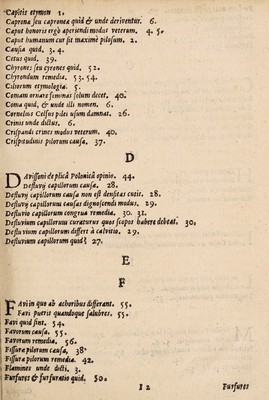 Capitis etymon 1.
Caprona seu capronea quid & unde deriventur. 6.
Caput honoris ergò aperiendi modus veterum. 4. 5.
Caput humanum cur sit maximè pilosum. 2.
Causia quid. 3. 4.
Cetus quid. 39.
Chyrones seu cyrones quid. 52.
Chyrondum remedia. 53. 54.
Ciliorum etymologia. 5.
Comam ornare feminas solum decet. 40.
Coma quid, & unde illi nomen. 6.
Cornelius Celsus pilei usum damnat. 26.
Crinis unde dictus. 6.
Crispandi crines modus veterum. 40.
Crispitudinis pilorum causa. 37.
D
DAvissoni de plicâ Polonicâ opinio. 44.
Defluvij capillorum causa. 28.
Defluvij capillorum causa non est densitas cutis. 28.
Defluvij capillorum causas dignoscendi modus. 29.
Defluvio capillorum congrua remedia. 30. 31.
Defluvium capillorum curaturus quos scopos habere debeat. 30.
Defluvium capillorum differt à calvitio. 29.
Defluvium capillorum quid? 27.
E
F
FAvi in quo ab achoribus differant. 55.
Favi pueris quandoque salubres. 55.
Favi quid sint. 54.
Favorum causa. 55.
Favorum remedia. 56.
Fissuræ pilorum causa. 38.
Fissuræ pilorum remedia. 42.
Flamines unde dicti. 3.
Furfures & furfuratio quid. 50.
I 2 Furfures